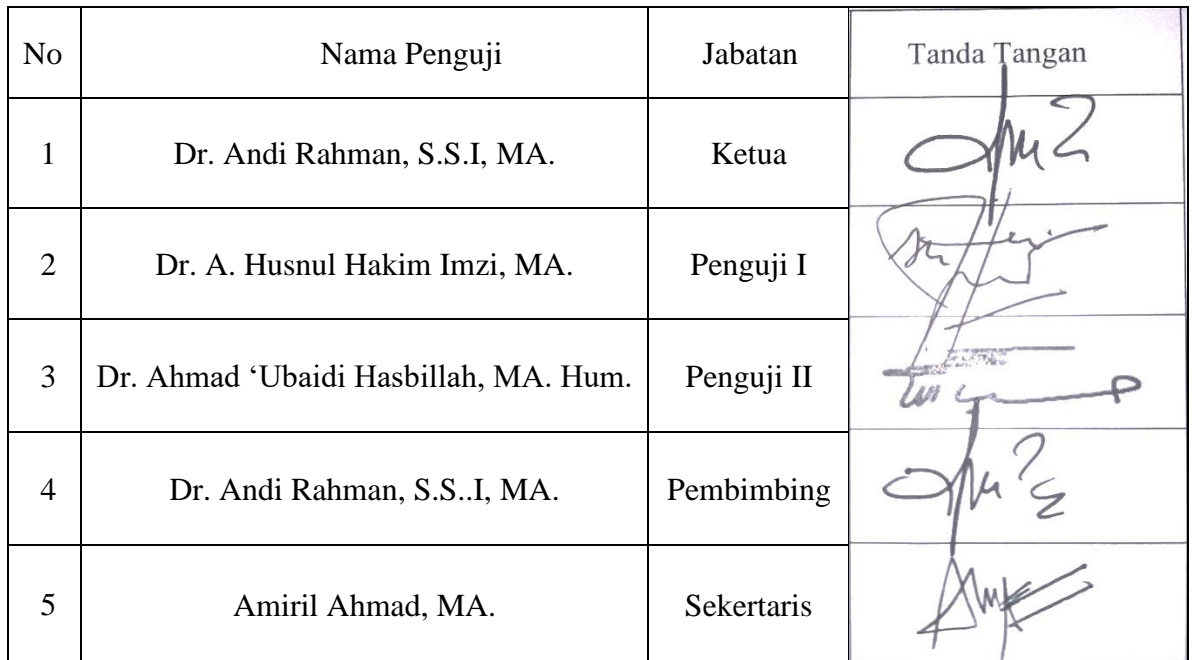 No Nama Penguji Jabatan Tanda Tangan
1 Dr. Andi Rahman, S.S.I, MA. Ketua
2 Dr. A. Husnul Hakim Imzi, MA. Penguji I
3 Dr. Ahmad ‘Ubaidi Hasbillah, MA. Hum. Penguji II
4 Dr. Andi Rahman, S.S..I, MA. Pembimbing
5 Amiril Ahmad, MA. Sekertaris